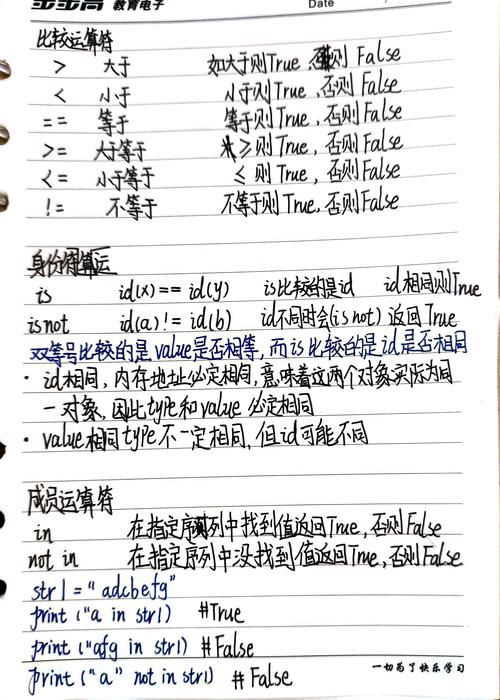 教育电子
Date
比较运算符
> 大于 如大于则True,否则 False
< 小于 小于则True,否则False
== 等于 等于则True,否则False
>= 大于等于 ≥则True,否则False
<= 小于等于 ≤则True,否则False
!= 不等于 不等于则True,否则False
身份运算
is id(x)== id(y) is比较的是id id相同则True
is not id(a)!= id(b) id不同时会(is not)返回True
双等号比较的是value是否相等,而is比较的是id是否相同
· id相同,内存地址必定相同,意味着这两个对象实际为同
一对象,因此type和value必定相同
· value相同type不一定相同,但id可能不同
成员运算符
in 在指定序列中找到值返回True,否则False
not in 在指定序列中没找到值返回True,否则False
str1="adcbefg"
print("a in str1) #True
print("afg in str1) #False
print("a" not in str1) # False
一切为了快乐学习